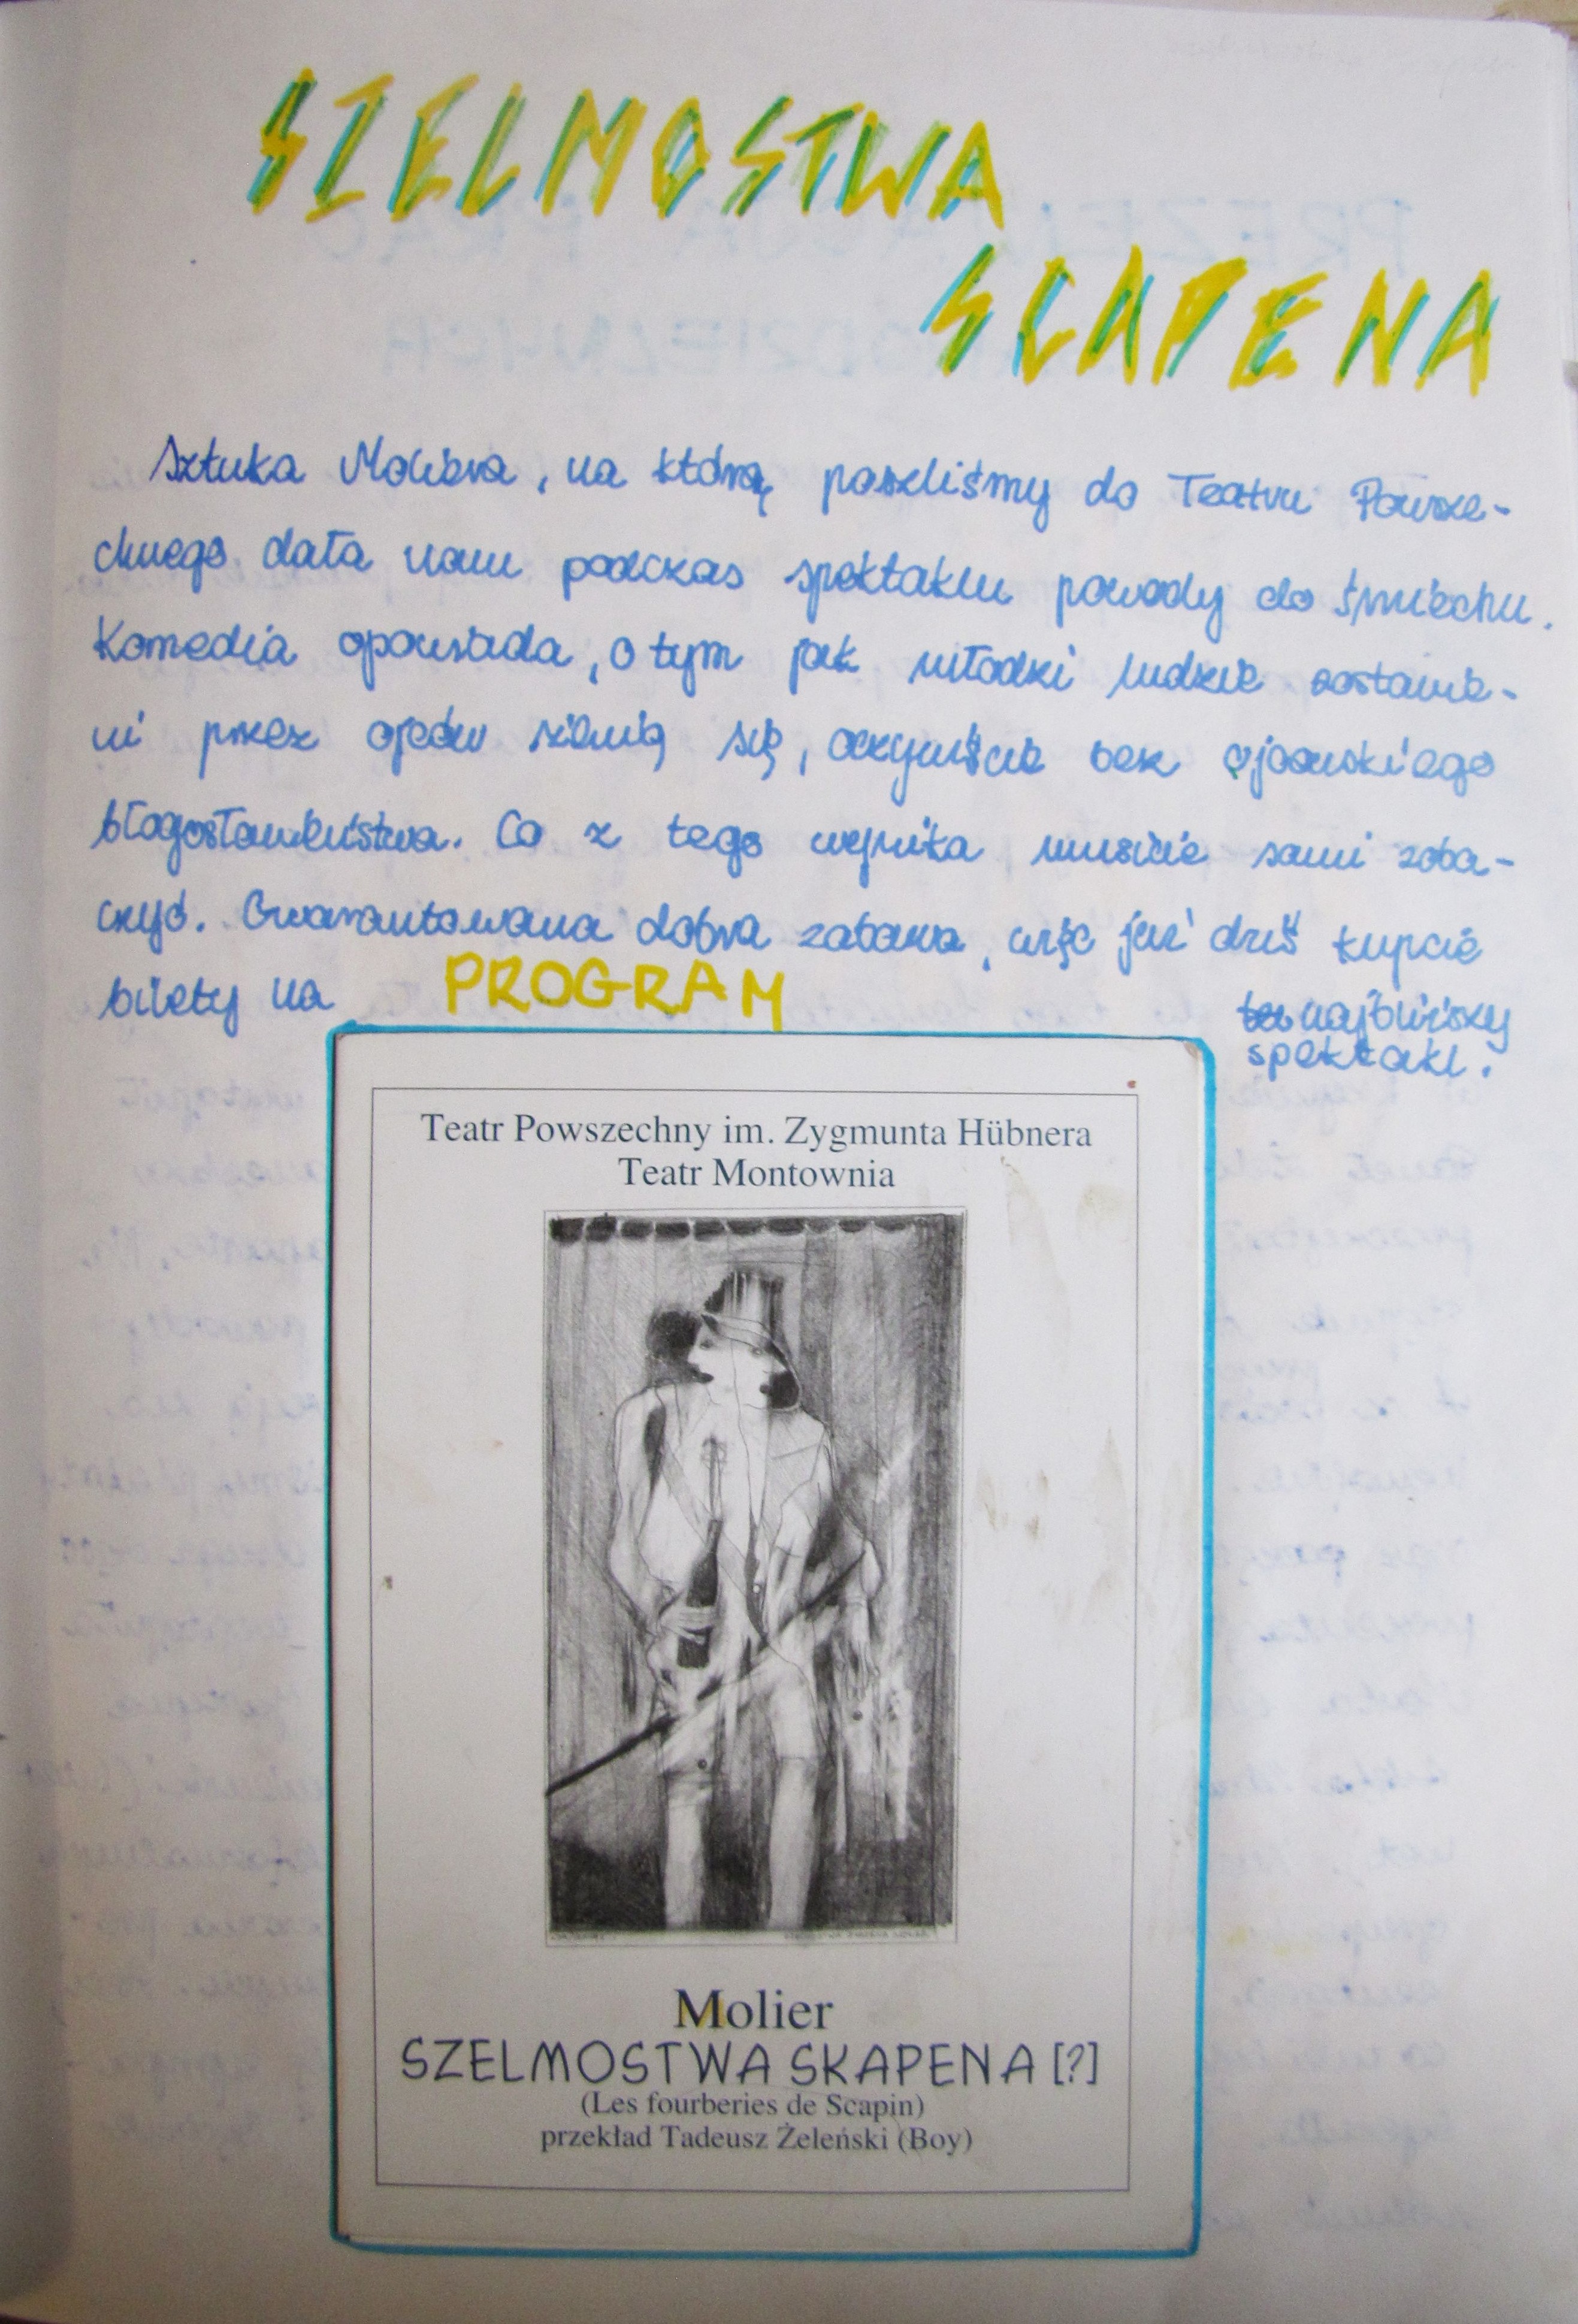 SZELMOSTWA
SCAPENA
Sztuka Moliera, na którą poszliśmy do Teatru Powsze-
chnego dała nam podczas spektaklu powody do śmiechu.
Komedia opowiada, o tym jak młodzi ludzie zostawie-
ni przez ojców żenią się, oczywiście bez ojcowskiego
błogosławieństwa. Co z tego wynika musicie sami zoba-
czyć. Gwarantowana dobra zabawa, więc już dziś kupcie
bilety na
najbliższy
spektakl.
PROGRAM
Teatr Powszechny im. Zygmunta Hübnera
Teatr Montownia
Molier
SZELMOSTWA SKAPENA [?]
(Les fourberies de Scapin)
przekład Tadeusz Żeleński (Boy)